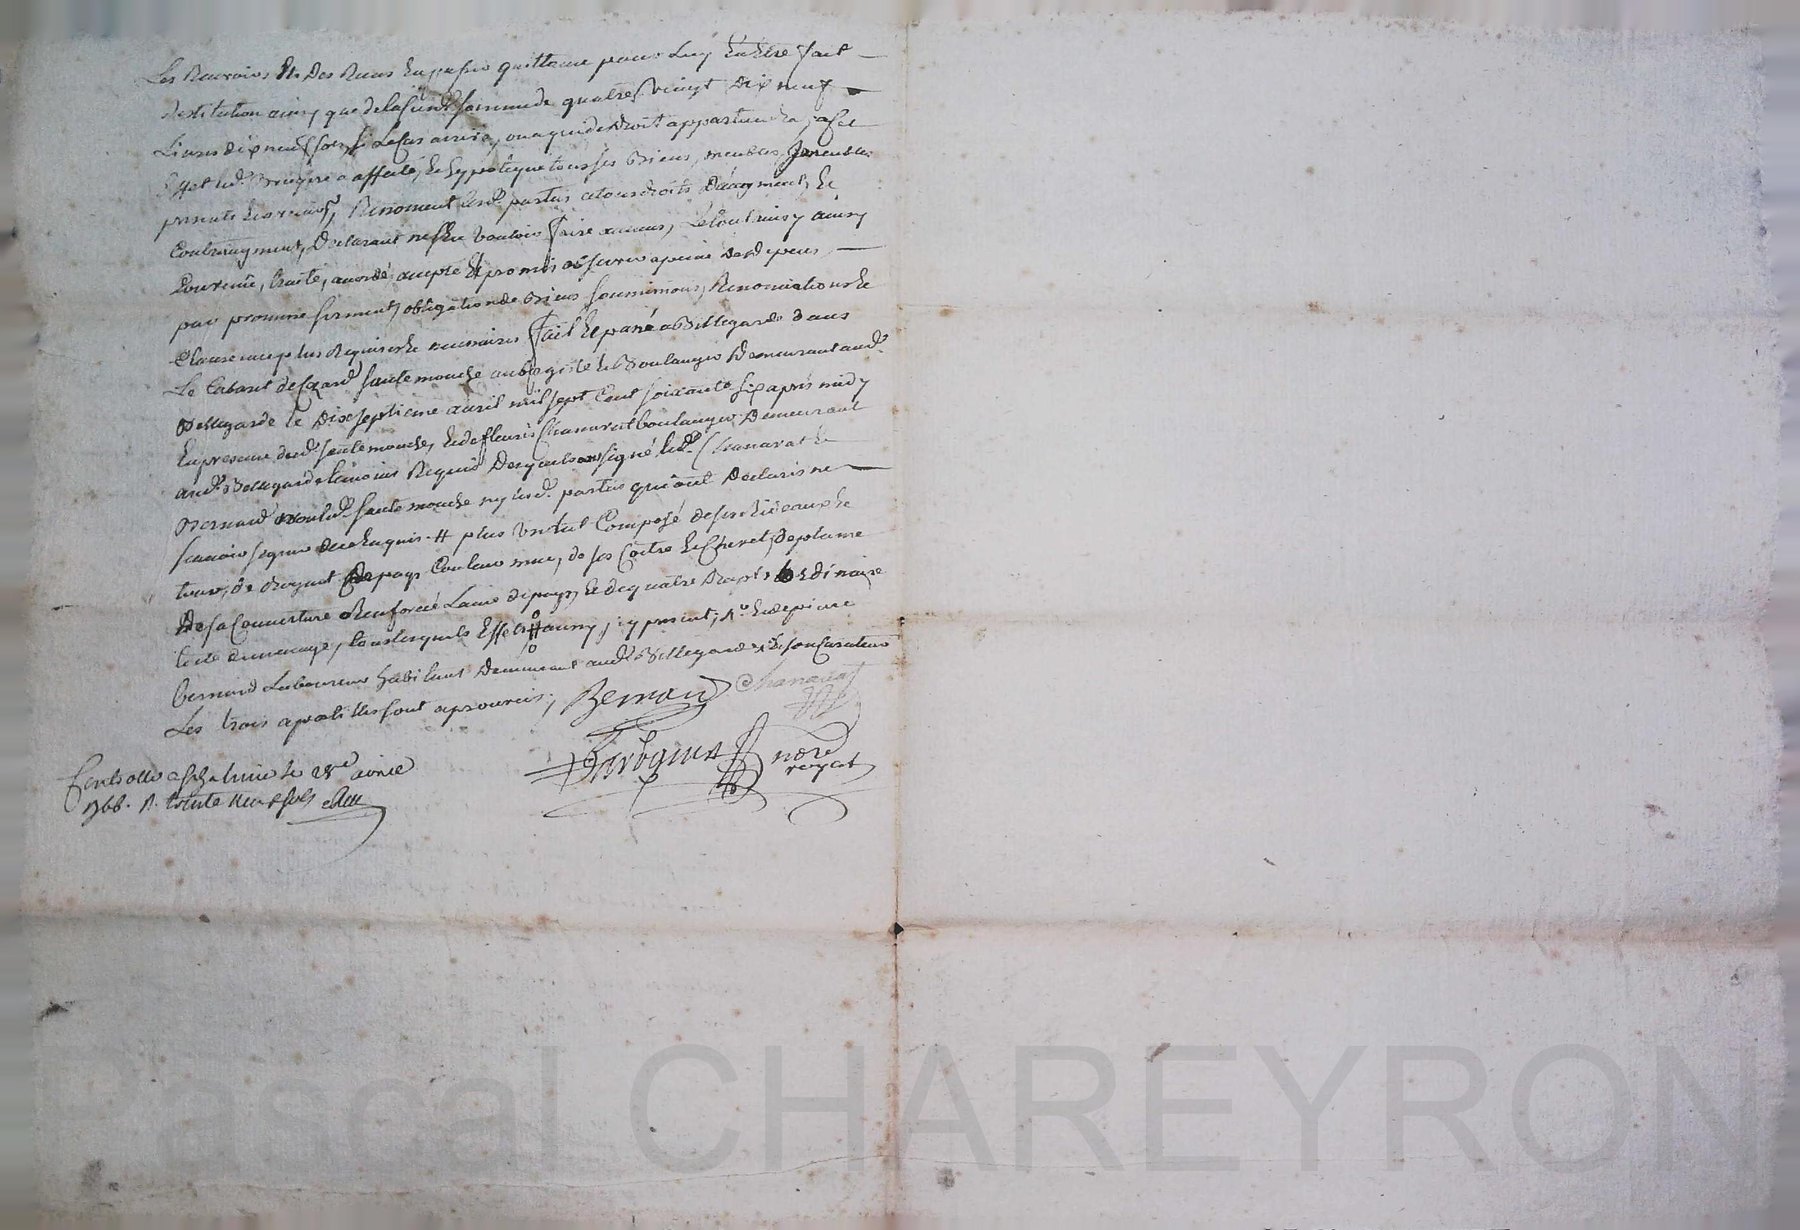 Les Recevoir Et Des Reçus En passer quittance pour Luy En Etre fait
Restitution ainsy que de la susd. somme de quatre vingt Dix neuf
Livres dix neuf sols, si Le Cas arrive, ou a qui de droit appartiendra, a Cet
Effet led. Bruyere a affecté, Et hypotéqué tous ses Biens, meubles, Jmeubles
presents Et avenirs, Renoncent lesd. parties a tous droits D'augment, Et
Contreaugment, Declarant ne s'En Vouloir faire aucuns, Le tout ainsy
Convenu, traité, accordé, accepté Et promis observer a peine de depens
par promesse serment, obligation de Biens soumissions, Renonciations Et
Clauses au plus Requises Et necessaires fait Et passé a Bellegarde dans
Le Cabaret de sautemouche aubergiste Et Boulanger Demeurant aud.
Bellegarde le Dixseptieme avril mil sept Cent soixante six après midy
En presence dud. sautemouche, Et de fleuris Chanavat boulanger Demeurant
aud. Bellegarde temoins Requis Desquels ont signé led. Chanavat Et
Bernard Non led. sautemouche ny lesd. parties qui ont Declaré ne
sçavoir signer de ce Enquis # plus Un lit Composé de ses Rideaux Et
tour, de du pays Couleur de ses Coitre Et Chevet, De plume
De sa Couverture Renforcée Laine du pays, Et de quatre Draps ordinaire
toile de menage, tous lesquels Effets # ainsy, icy present, Et de pierre
bernard Laboureur habitant Demeurant aud. Bellegarde Et son Curateur
Les trois apostilles sont aprouvées,
Bernard Chanavat
nore royal
Controllé a le 28e avril
1766. R. trente neuf sols
Pascal CHAREYRON